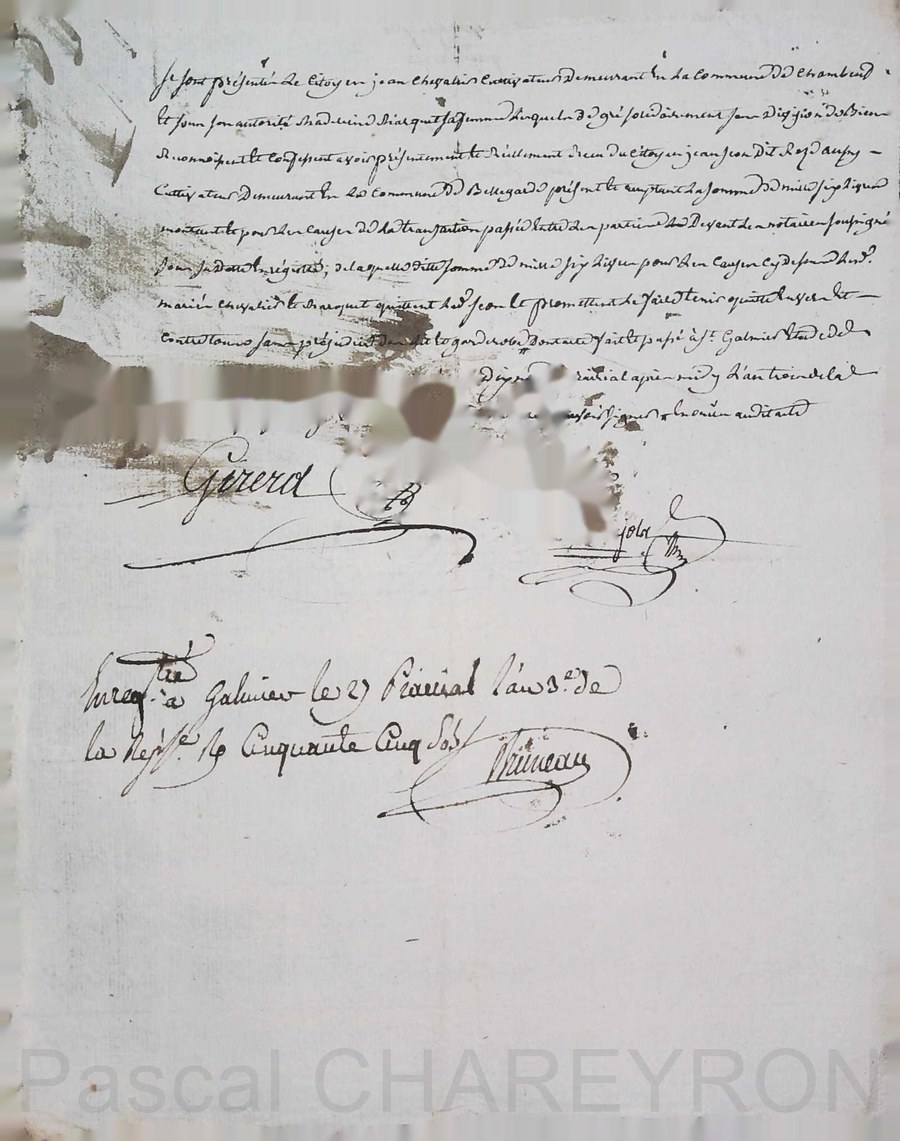 se sont présentés le Citoyen jean Chevalier Cultivateur Demeurant En la Commune de Chambeuf
Et sous son autorité Madeleine Marquet sa femme Lesquels de gré solidairement sans Division de Biens
Reconnoissent et Confessent avoir présentement et Réellement Recu du Citoyen jean jeon Dit
Cultivateur Demeurant En la Commune de Bellegarde présent et acceptant la somme de mille six livres
montant et pour les Causes de la transaction passée Entre les parties Devant les notaires soussignés
; de laquelle ditte somme de mille six livres pour les Causes Cy dessus Les d.
mariés Chevalier et Marquet quittent Led. jeon et promettent Le faire tenir quitte Envers Et
Contre tous sans préjudice Dont acte fait et passé à St. Galmier Etude de
prairial après midy L'an trois de la
soussignés
Girerd
jolx
Enregtré à Galmier le 27 Prairial l'an 3e. de
la Repque. R Cinquante Cinq Sols
Bruneau
Pascal CHAREYRON